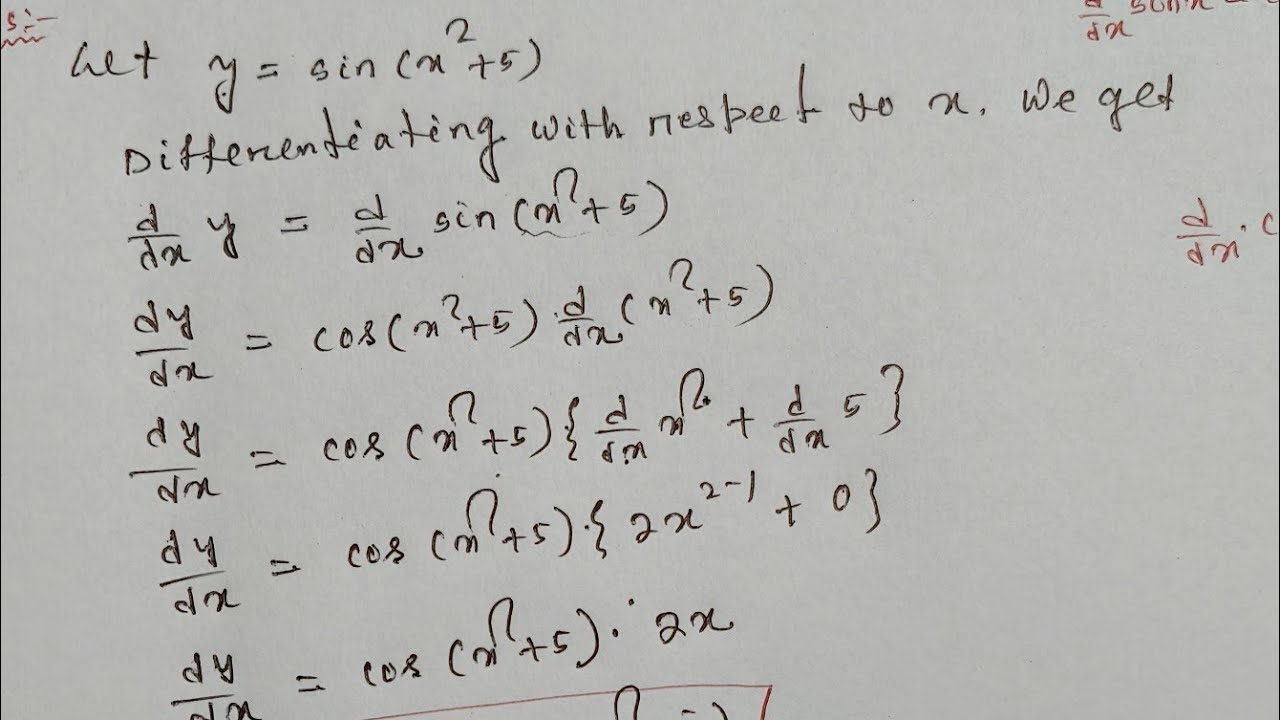 s:-
d/dx sinx
Let y = sin(x²+5)
Differentiating with respect to x. We get
d/dx y = d/dx sin(x²+5)
d/dx .
dy/dx = cos(x²+5) . d/dx (x²+5)
dy/dx = cos(x²+5){d/dx x² + d/dx 5}
dy/dx = cos(x²+5).{2x²⁻¹ + 0}
dy/dx = cos(x²+5) . 2x